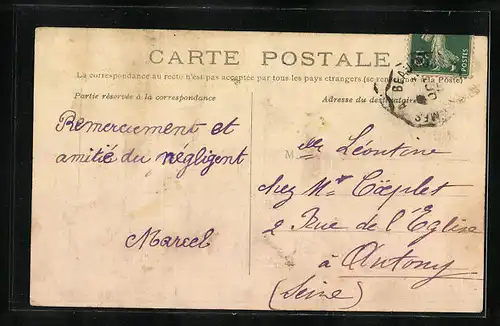 CARTE POSTALE
La correspondance au recto n'est pas acceptée par tous les pays étrangers (se la Poste)
Partie réservée à la correspondance
Adresse du destinataire
POSTES
Remerciement et
amitié du négligent
Marcel
M elle Léontine
chez Mr Cœplet
2 Rue de l'Eglise
à Antony
(Seine)